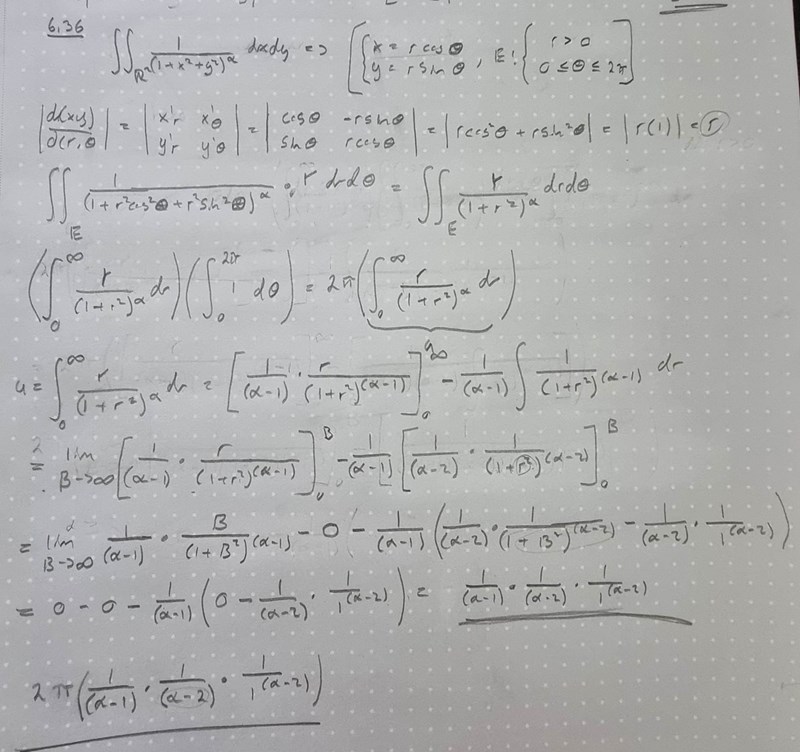 6.36
∬_{ℝ²} 1/(1+x²+y²)^α dxdy => [{x = r cos θ, y = r sin θ, E: {r > 0, 0 ≤ θ ≤ 2π]
|d(xy)/d(r,θ| = |x'r x'θ; y'r y'θ| = |cosθ -rsinθ; sinθ rcosθ| = |rcos²θ + rsin²θ| = |r(1)| = r
∬_E 1/(1+r²cos²θ+r²sin²θ)^α · r drdθ = ∬_E r/(1+r²)^α drdθ
(∫_0^∞ r/(1+r²)^α dr)(∫_0^{2π} 1 dθ) = 2π(∫_0^∞ r/(1+r²)^α dr)
u = ∫_0^∞ r/(1+r²)^α dr = [1/(α-1) · r/(1+r²)^(α-1)]_0^∞ - 1/(α-1) ∫ 1/(1+r²)^(α-1) dr
= lim_{B→∞} [1/(α-1) · r/(1+r²)^(α-1)]_0^B - 1/(α-1) [1/(α-2) · 1/(1+r²)^(α-2)]_0^B
= lim_{B→∞} 1/(α-1) · B/(1+B²)^(α-1) - 0 - 1/(α-1) (1/(α-2) · 1/(1+B²)^(α-2) - 1/(α-2) · 1/1^(α-2))
= 0 - 0 - 1/(α-1) (0 - 1/(α-2) · 1/1^(α-2)) = 1/(α-1) · 1/(α-2) · 1/1^(α-2)
2π(1/(α-1) · 1/(α-2) · 1/1^(α-2))